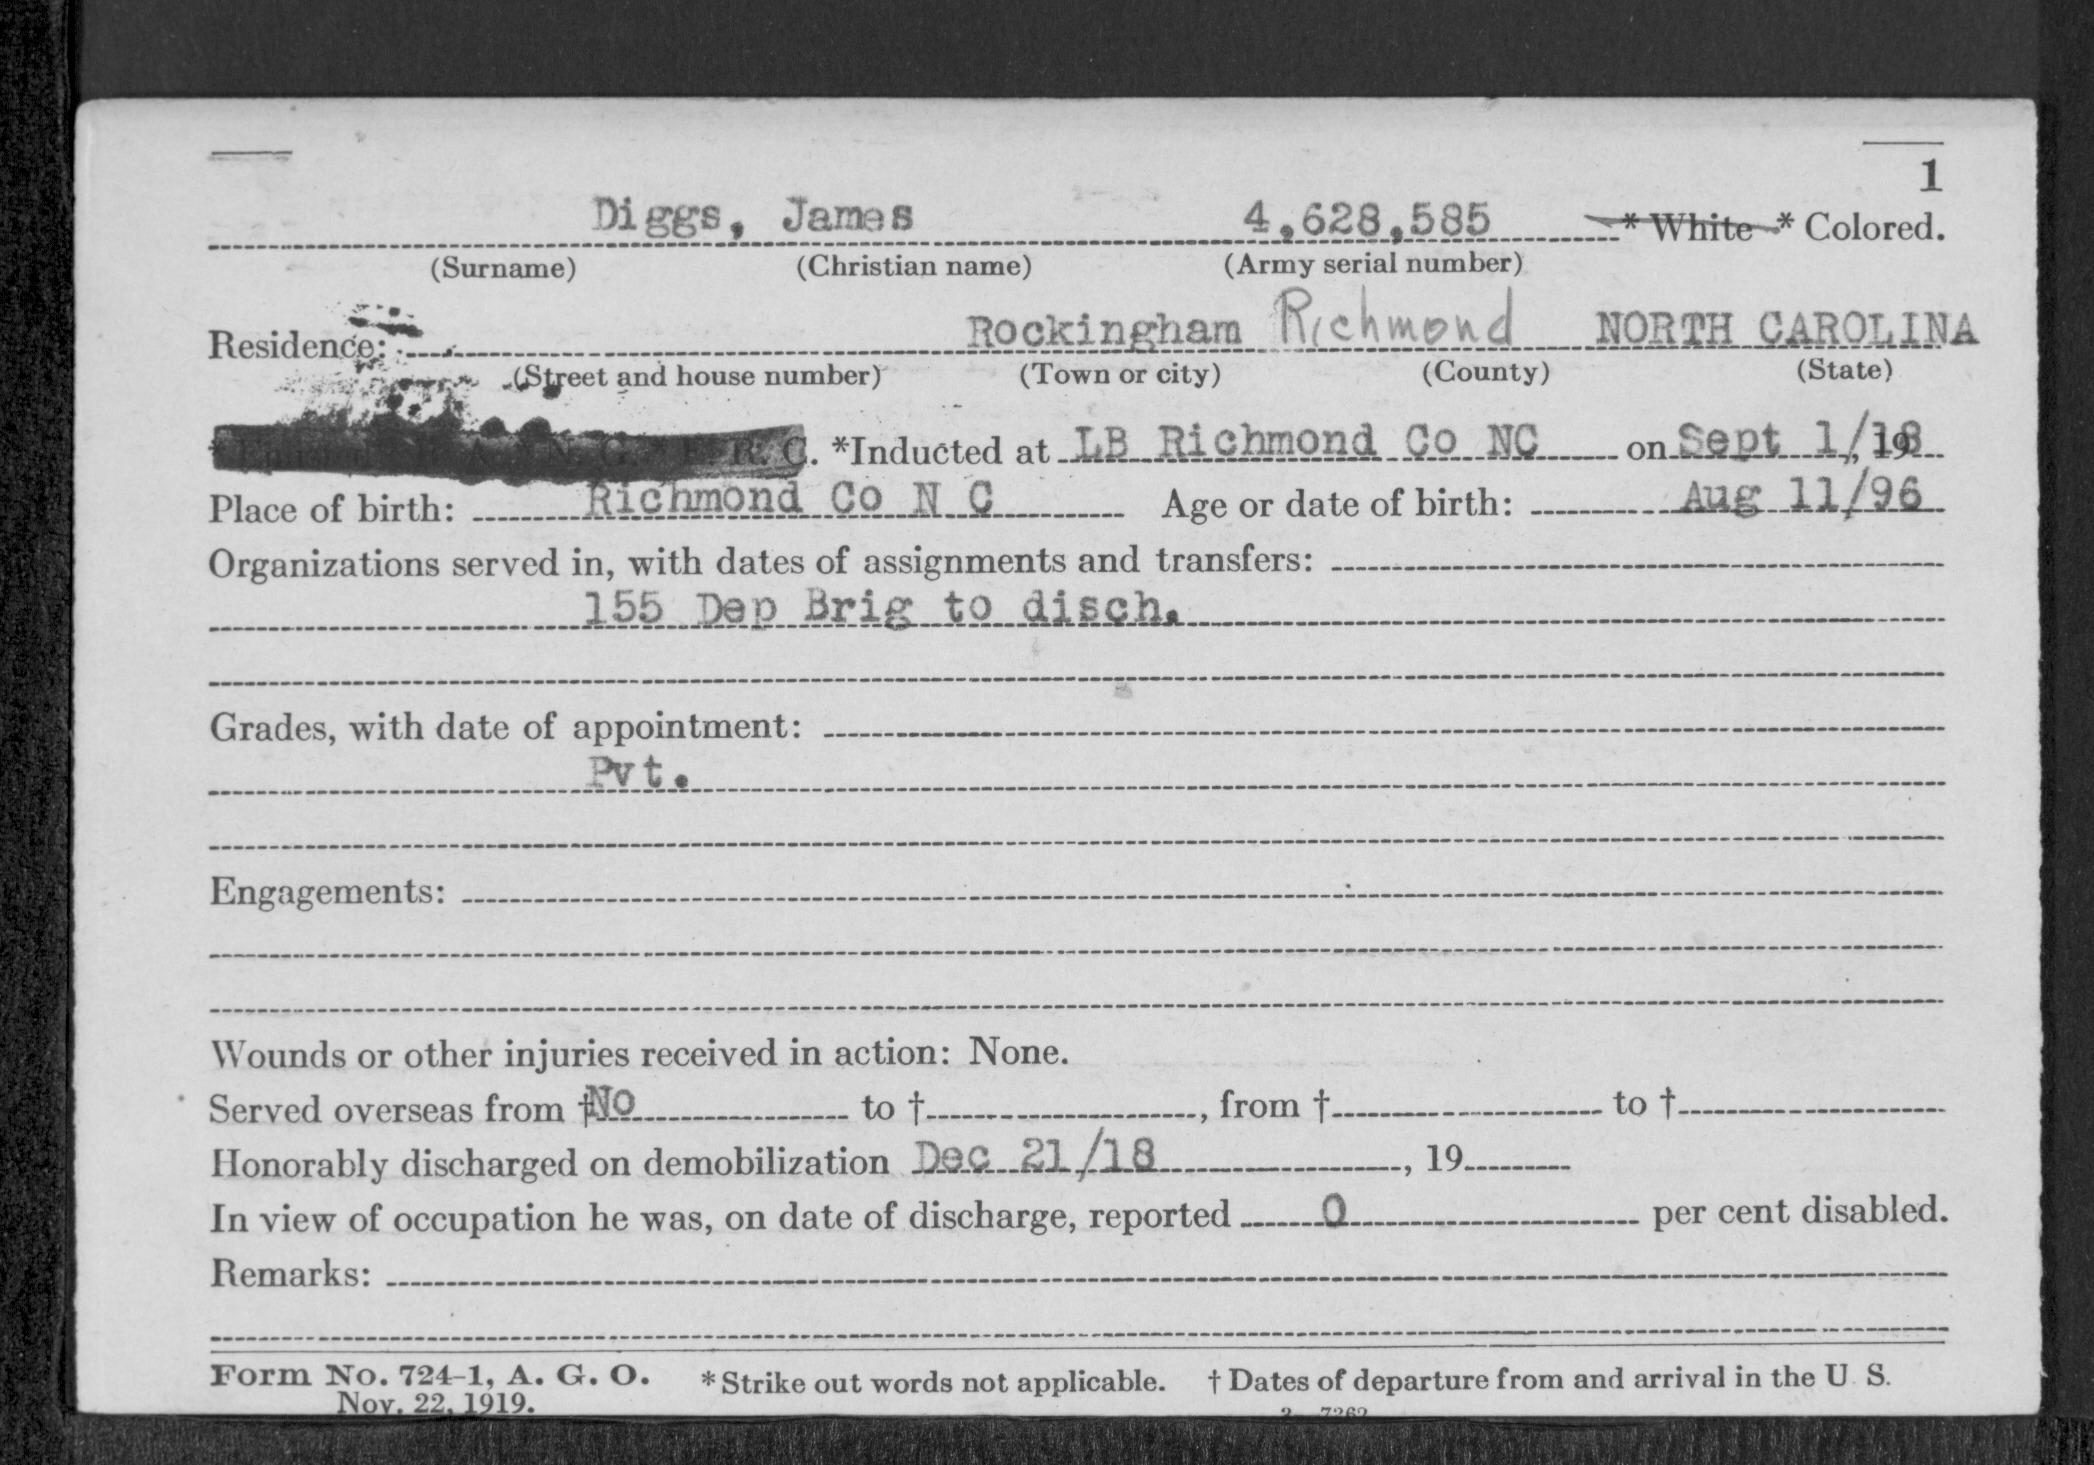 1
Diggs, James 4,628,585 * White * Colored.
(Surname) (Christian name) (Army serial number)
Residence: Rockingham Richmond NORTH CAROLINA
(Street and house number) (Town or city) (County) (State)
R. C. *Inducted at LB Richmond Co NC on Sept 1/18, 19
Place of birth: Richmond Co N C Age or date of birth: Aug 11/96
Organizations served in, with dates of assignments and transfers:
155 Dep Brig to disch.
Grades, with date of appointment:
Pvt.
Engagements:
Wounds or other injuries received in action: None.
Served overseas from † No to †, from † to †
Honorably discharged on demobilization Dec 21/18, 19
In view of occupation he was, on date of discharge, reported 0 per cent disabled.
Remarks:
Form No. 724-1, A. G. O. * Strike out words not applicable. † Dates of departure from and arrival in the U. S.
Nov. 22, 1919.